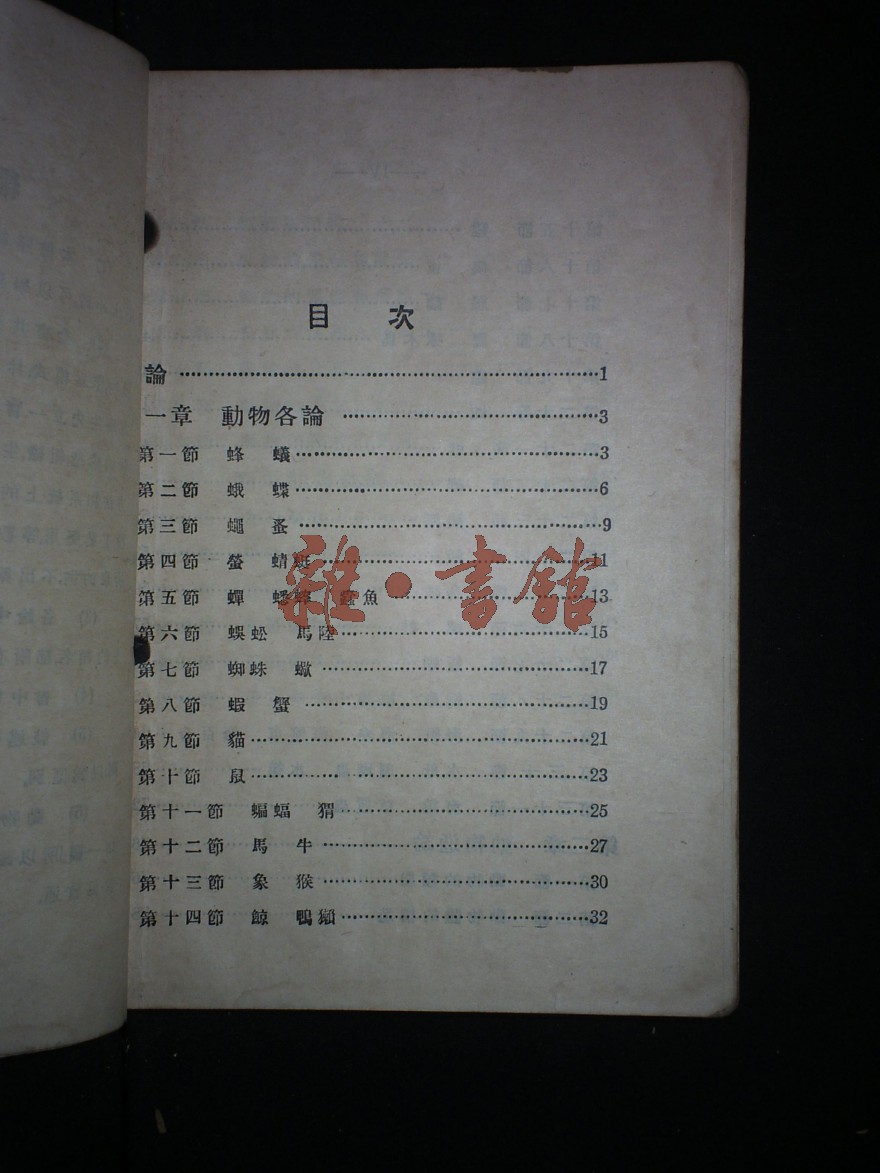 目 次
論 1
一章 動物各論 3
第一節 蜂 蟻 3
第二節 蛾 蝶 6
第三節 蠅 蚤 9
第四節 螢 蜻蜓 11
第五節 蟬 蟋蟀 蠹魚 13
第六節 蜈蚣 馬陸 15
第七節 蜘蛛 蠍 17
第八節 蝦 蟹 19
第九節 貓 21
第十節 鼠 23
第十一節 蝙蝠 猬 25
第十二節 馬 牛 27
第十三節 象 猴 30
第十四節 鯨 鴨獺 32
雜·書館